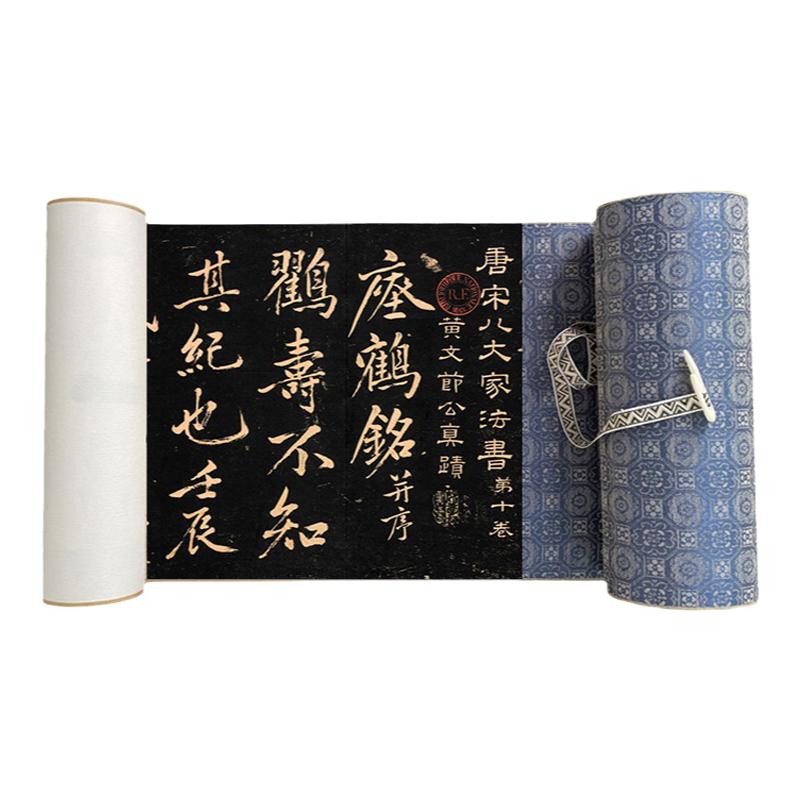 唐宋八大家法書第十卷
黃文節公真蹟
R.F.
瘞鶴銘并序
鸛壽不知
其紀也壬辰